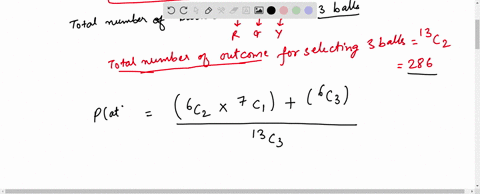 Total number of 3 balls
R G Y
Total number of outcome for selecting 3 balls = ¹³C₂
= 286
P(at = (⁶C₂ × ⁷C₁) + (⁶C₃)
¹³C₃